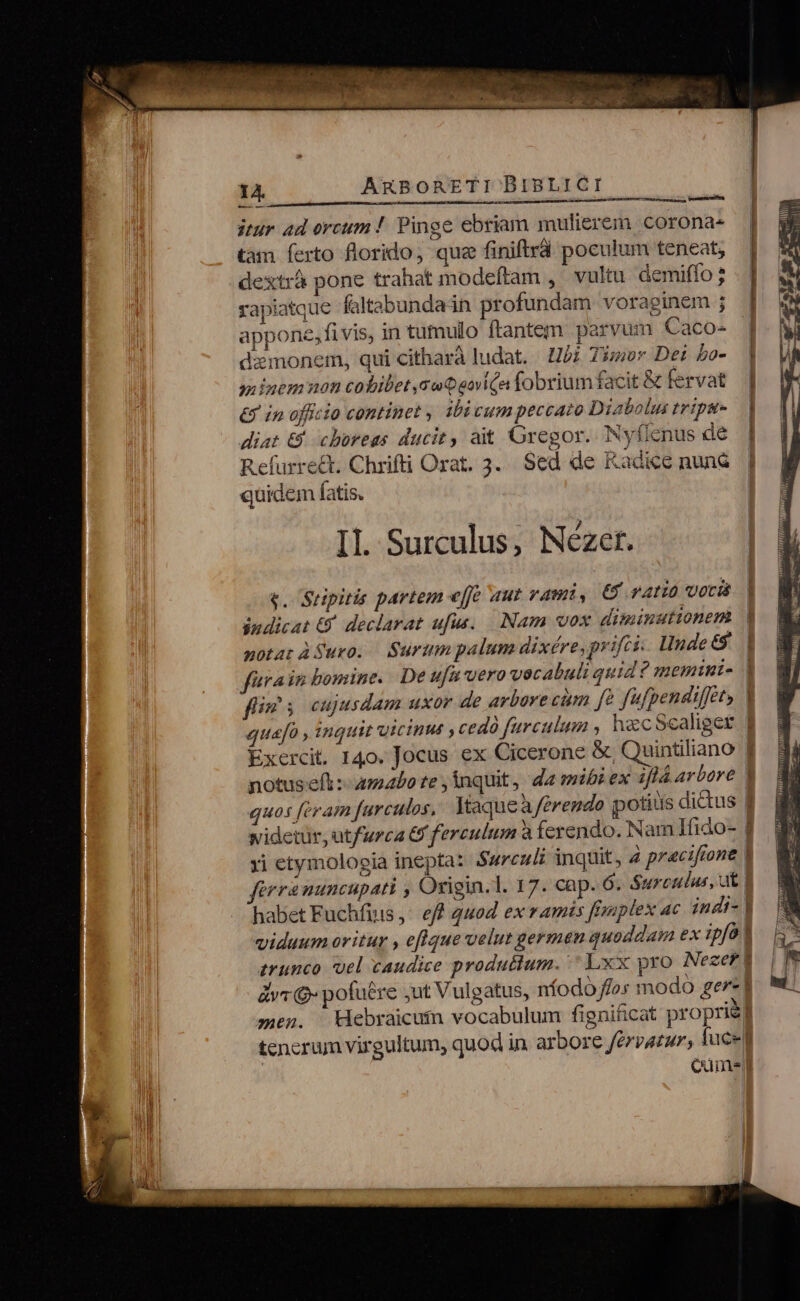 14 ARBORETI BIBLICI
itur ad orcum! Pinge ebriam mulierem corona-
tam ſerto florido, quæ ſiniſtrâ poculum teneat;
dextrâ pone trahat modeſtam, vultu demiſſo;
rapiatque ſaltabunda in profundam voraginem;
appone, ſi vis, in tumulo ſtantem parvum Caco-
dæmonem, qui citharâ ludat. Ubi Timor Dei ho-
minem non cohibet, σωφρονίζει ſobrium facit & ſervat
& in officio continet, ibi cum peccato Diabolus tripu-
diat & choreas ducit, ait Gregor. Nyſſenus de
Reſurrect. Chriſti Orat. 3. Sed de Radice nunc
quidem ſatis.
II. Surculus, Nezer.
§. Stipitis partem eſſe aut rami, & ratio vocis
indicat & declarat uſus. Nam vox diminutionem
notat à Suro. Surum palum dixére, priſci. Unde &
ſura in homine. De uſu vero vocabuli quid? memini-
ſtin'; cujusdam uxor de arbore cùm ſe ſuſpendiſſet,
quæſo, inquit vicinus, cedò ſurculum, hæc Scaliger
Exercit. 140. Jocus ex Cicerone & Quintiliano
notus eſt: amabo te, inquit, da mihi ex iſtâ arbore
quos ſeram ſurculos. Itaque à ferendo potiùs dictus
videtur, ut furca & ferculum à ferendo. Nam Iſido-
ri etymologia inepta: Surculi inquit, à præciſione
ſerræ nuncupati, Origin. l. 17. cap. 6. Surculus, ut
habet Fuchſius, eſt quod ex ramis ſimplex ac indi-
viduum oritur, eſtque velut germen quoddam ex ipſo
trunco vel caudice productum. Lxx pro Nezer
ἄνϑος poſuêre, ut Vulgatus, modò flos modò ger-
men. Hebraicum vocabulum ſignificat propriè
tenerum virgultum, quod in arbore ſervatur, ſuc-
cum-